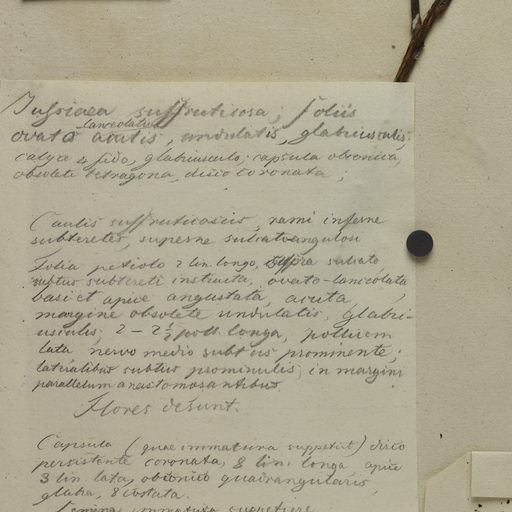 Jussiaea suffruticosa; foliis
ovato lanceolatis acutis, undulatis, glabriusculis;
calyce 4 fido, glabriusculo; capsula obconica,
obsolete tetragona, disco coronata;
Caulis suffruticosus, rami inferne
subteretes, superne
Folia petiolo 2 lin longo, supra sulcato
subtus subtereti instructa, ovato-lanceolata
basi et apice angustata, acuta,
margine obsolete undulatis, glabri-
usculis; 2 - 2 1/2 poll. longa, pollicem
lata nervo medio subtus prominente;
lateralibus subtus prominulis; in margini
parallelum anastomosantibus
Flores desunt.
Capsula (quae immatura suppetit) disco
persistente coronata, 8 lin. longa, apice
3 lin lata, obconico quadrangularis,
glabra, 8 costata.
Semina immatura